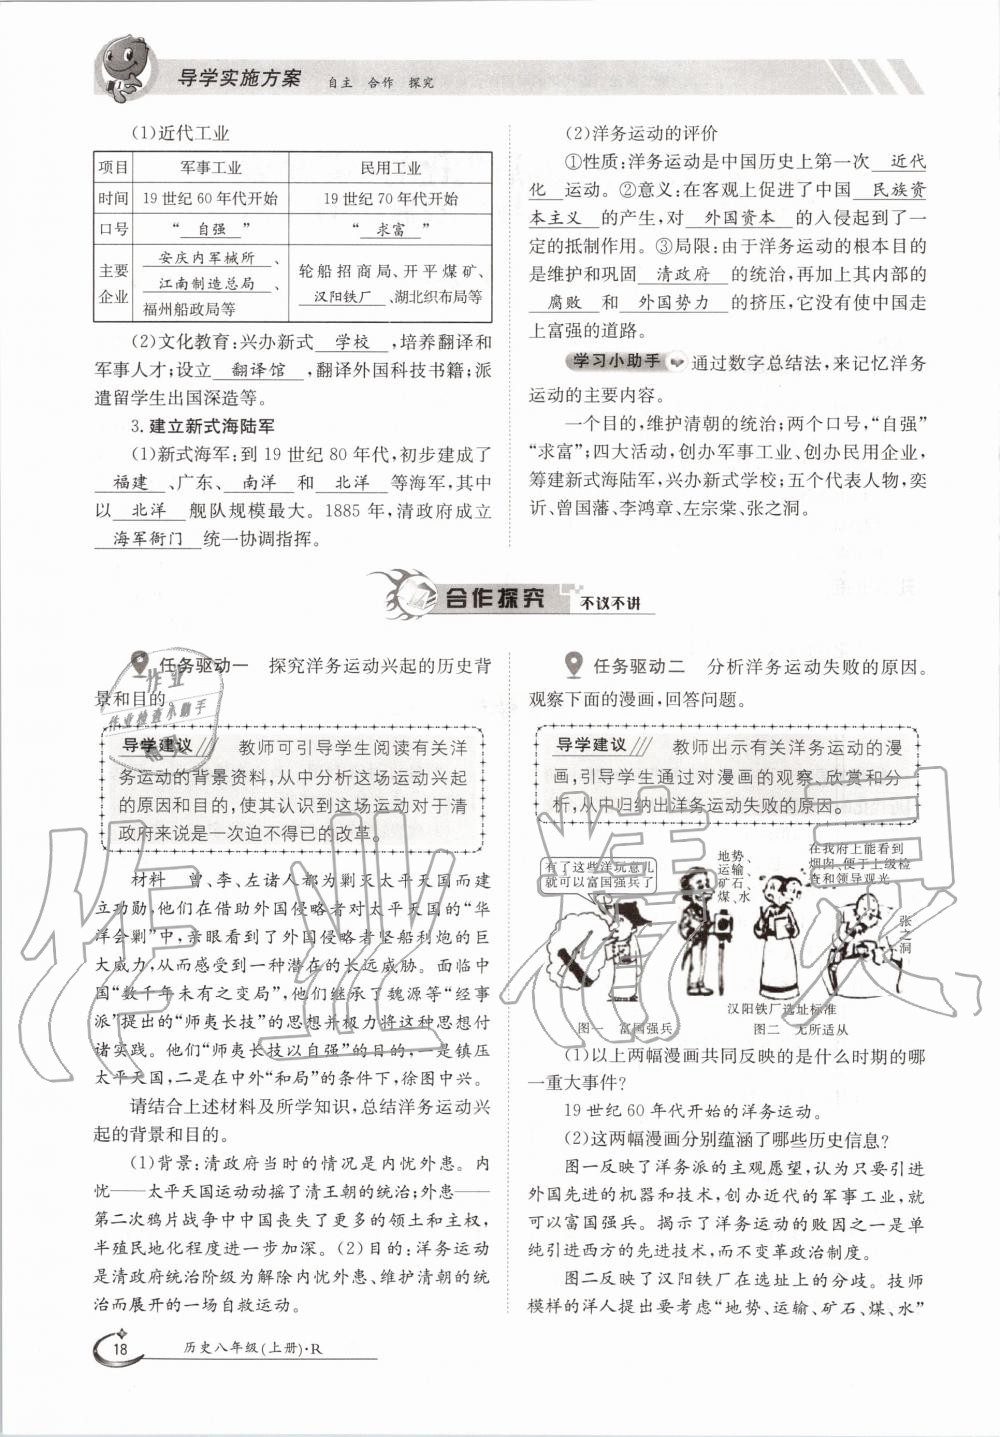 导学实施方案 自主 合作 探究
(1)近代工业
项目 军事工业 民用工业
时间 19世纪60年代开始 19世纪70年代开始
口号 “ 自强 ” “ 求富 ”
主要企业 安庆内军械所、 江南制造总局、 福州船政局等 轮船招商局、开平煤矿、 汉阳铁厂、湖北织布局等
(2)文化教育:兴办新式 学校 ,培养翻译和
军事人才;设立 翻译馆 ,翻译外国科技书籍;派
遣留学生出国深造等。
3.建立新式海陆军
(1)新式海军:到19世纪80年代,初步建成了
福建 、广东、 南洋 和 北洋 等海军,其中
以 北洋 舰队规模最大。1885年,清政府成立
海军衙门 统一协调指挥。
(2)洋务运动的评价
①性质:洋务运动是中国历史上第一次 近代
化 运动。②意义:在客观上促进了中国 民族资
本主义 的产生,对 外国资本 的入侵起到了一
定的抵制作用。③局限:由于洋务运动的根本目的
是维护和巩固 清政府 的统治,再加上其内部的
腐败 和 外国势力 的挤压,它没有使中国走
上富强的道路。
学习小助手 通过数字总结法,来记忆洋务
运动的主要内容。
一个目的,维护清朝的统治;两个口号,“自强”
“求富”;四大活动,创办军事工业、创办民用企业,
筹建新式海陆军,兴办新式学校;五个代表人物,奕
䜣、曾国藩、李鸿章、左宗棠、张之洞。
合作探究 不议不讲
任务驱动一 探究洋务运动兴起的历史背
景和目的。
导学建议 教师可引导学生阅读有关洋
务运动的背景资料,从中分析这场运动兴起
的原因和目的,使其认识到这场运动对于清
政府来说是一次迫不得已的改革。
材料 曾、李、左诸人都为剿灭太平天国而建
立功勋,他们在借助外国侵略者对太平天国的“华
洋会剿”中,亲眼看到了外国侵略者坚船利炮的巨
大威力,从而感受到一种潜在的长远威胁。面临中
国“数千年未有之变局”,他们继承了魏源等“经事
派”提出的“师夷长技”的思想并极力将这种思想付
诸实践。他们“师夷长技以自强”的目的,一是镇压
太平天国,二是在中外“和局”的条件下,徐图中兴。
请结合上述材料及所学知识,总结洋务运动兴
起的背景和目的。
(1)背景:清政府当时的情况是内忧外患。内
忧——太平天国运动动摇了清王朝的统治;外患——
第二次鸦片战争中中国丧失了更多的领土和主权,
半殖民地化程度进一步加深。(2)目的:洋务运动
是清政府统治阶级为解除内忧外患、维护清朝的统
治而展开的一场自救运动。
任务驱动二 分析洋务运动失败的原因。
观察下面的漫画,回答问题。
导学建议 教师出示有关洋务运动的漫
画,引导学生通过对漫画的观察、欣赏和分
析,从中归纳出洋务运动失败的原因。
有了这些洋玩意儿
就可以富国强兵了
地势、
运输、
矿石、
煤、水
在我府上能看到
烟囱,便于上级检
查和领导观光
张之洞
汉阳铁厂选址标准
图一 富国强兵 图二 无所适从
(1)以上两幅漫画共同反映的是什么时期的哪
一重大事件?
19世纪60年代开始的洋务运动。
(2)这两幅漫画分别蕴涵了哪些历史信息?
图一反映了洋务派的主观愿望,认为只要引进
外国先进的机器和技术,创办近代的军事工业,就
可以富国强兵。揭示了洋务运动的败因之一是单
纯引进西方的先进技术,而不变革政治制度。
图二反映了汉阳铁厂在选址上的分歧。技师
模样的洋人提出要考虑“地势、运输、矿石、煤、水”
18 历史八年级(上册)·R
作业精灵
作业
作业检查小助手
精灵